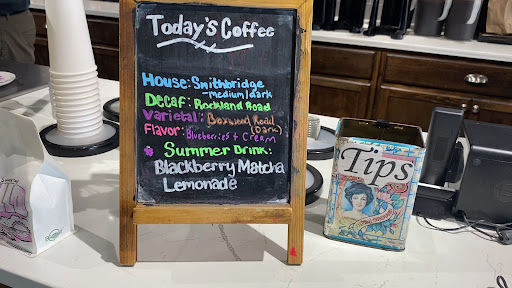 Today's Coffee
House: Smithbridge
- medium/dark
Decaf: Rockland Road
Varietal: Boxwood Road
(Dark)
Flavor: Blueberries + Cream
Summer Drink:
Blackberry Matcha
Lemonade
Tips